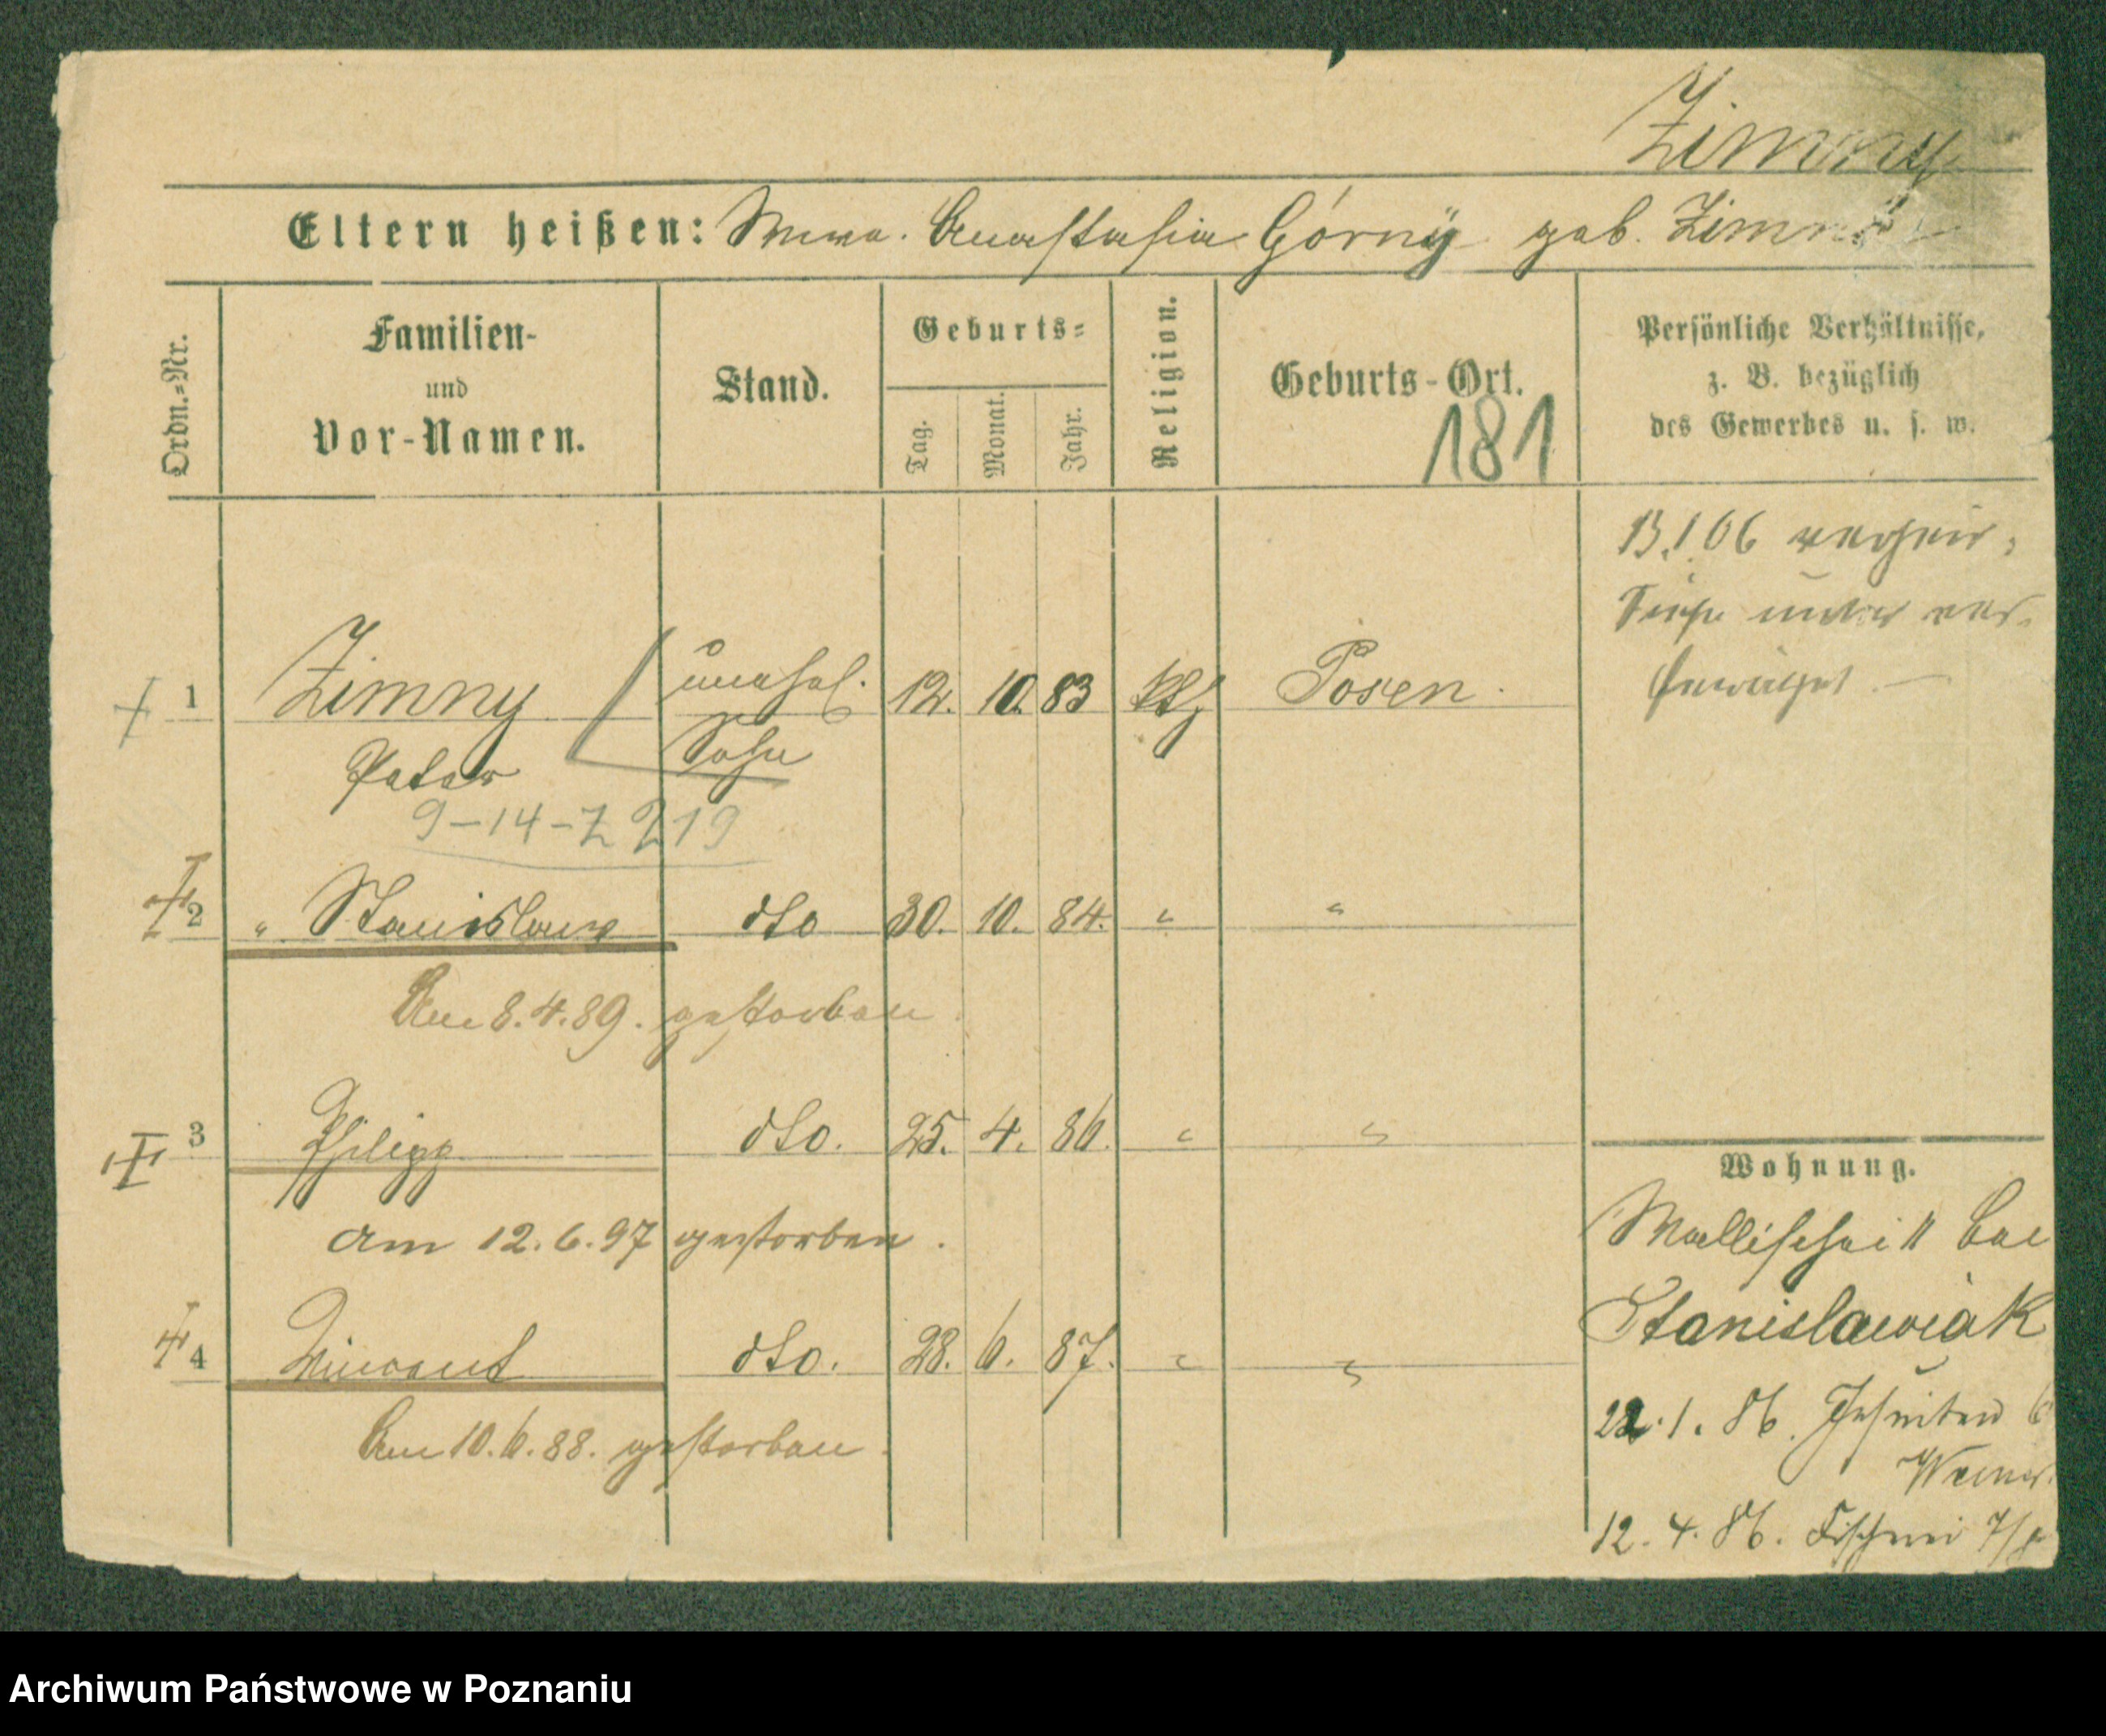 Zimny
Eltern heißen: Wwe. Anastasia Górny geb. Zimny
Ordn.=Nr.
Familien-
und
Vor-Namen.
Stand.
Geburts=
Tag.
Monat.
Jahr.
Religion.
Geburts-Ort.
181
Persönliche Verhältnisse,
z. B. bezüglich
des Gewerbes u. s. w.
13.1 06
1 Zimny unehel. 12. 10. 83 kth Posen.
Peter Sohn
9-14-Z 219
2 " Stanislaus dto 30. 10. 84. " "
Am 8.4.89. gestorben.
3 Philipp dto. 25. 4. 86. " "
am 12.6.97 gestorben.
4 Vincent dto. 28. 6. 87. " "
Am 10.6.88. gestorben.
Wohnung.
Wallischei 11 bei
Stanislawiak
22.1.86. Jesuiten 6
12.4.86. Fischerei 7/8
Archiwum Państwowe w Poznaniu